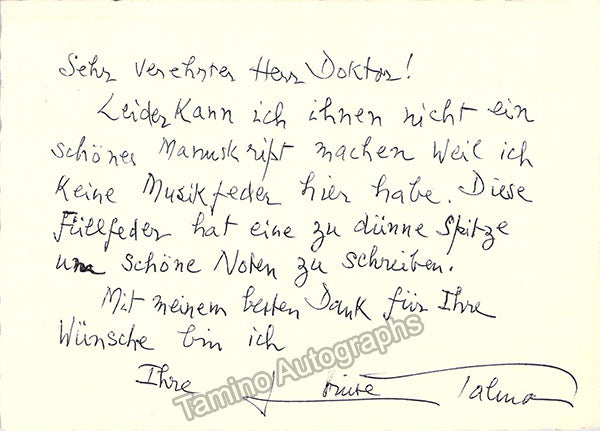 Sehr verehrter Herr Doktor!
Leider Kann ich ihnen nicht ein
schönes Manuskript machen weil ich
Keine Musikfeder hier habe. Diese
Füllfeder hat eine zu dünne Spitze
um schöne Noten zu schreiben.
Mit meinem besten Dank für Ihre
Wünsche bin ich
Ihre Louise Talma
Tamino Autographs